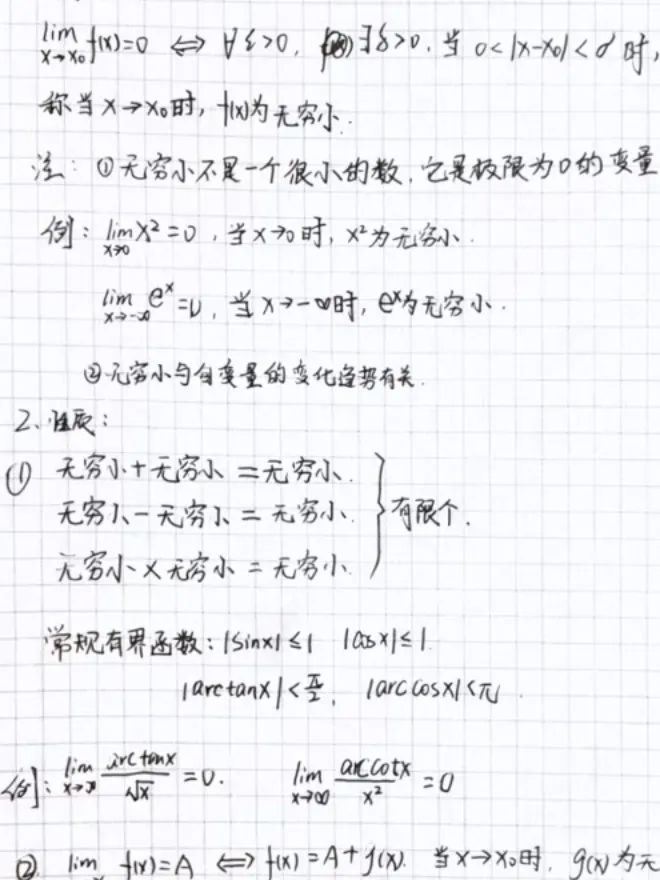 lim x→x₀ f(x)=0 ⟺ ∀ε>0, ∃δ>0, 当 0<|x-x₀|<δ 时,
称当 x→x₀时, f(x)为无穷小.
注: ①无穷小不是一个很小的数, 它是极限为0的变量
例: lim x→0 x²=0, 当x→0时, x²为无穷小.
lim x→-∞ eˣ=0, 当x→-∞时, eˣ为无穷小.
②无穷小与自变量的变化趋势有关.
2、性质:
① 无穷小+无穷小=无穷小.
无穷小-无穷小=无穷小. } 有限个.
无穷小×无穷小=无穷小.
常规有界函数: |sinx|≤1 |cosx|≤1
|arctanx|<π/2, |arccosx|<π.
例: lim x→∞ arctanx/√x =0. lim x→∞ arccotx/x² =0
② lim f(x)=A ⟺ f(x)=A+g(x). 当x→x₀时, g(x)为无